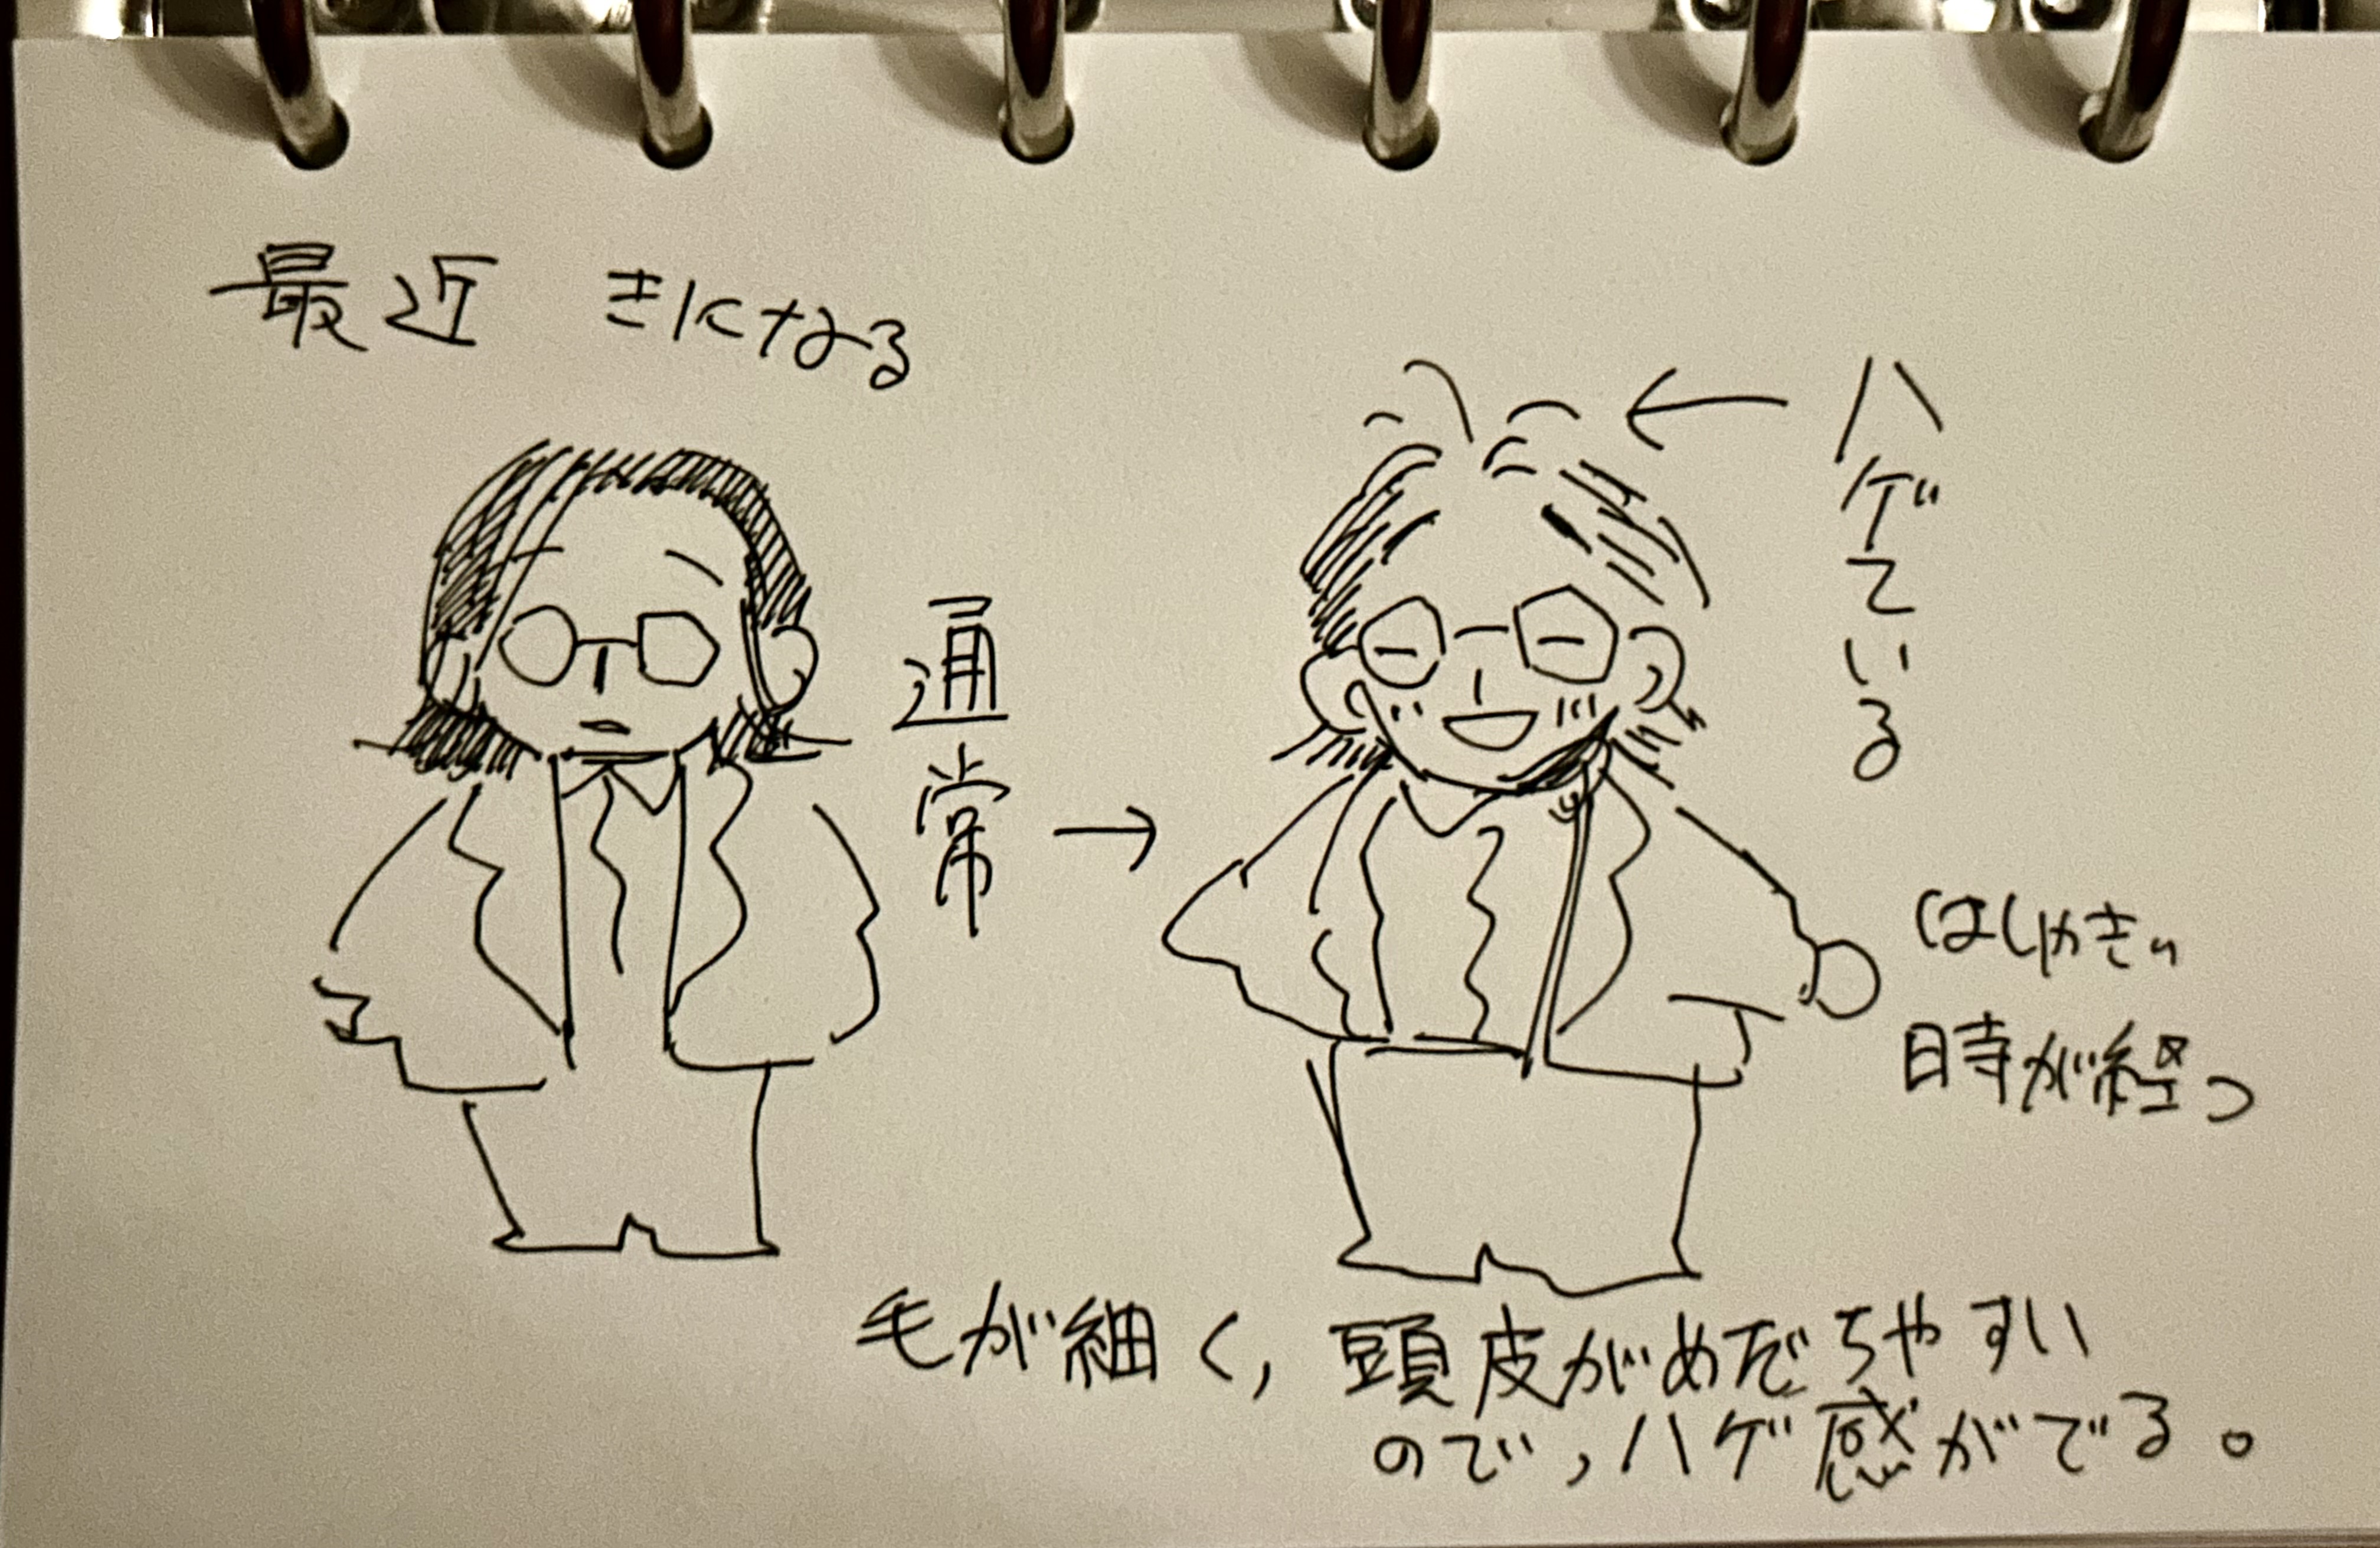 最近 きになる
通常
→
← ハゲている
はしゃぎ
時が経つ
毛が細く,頭皮がめだちやすい
ので,ハゲ感がでる。